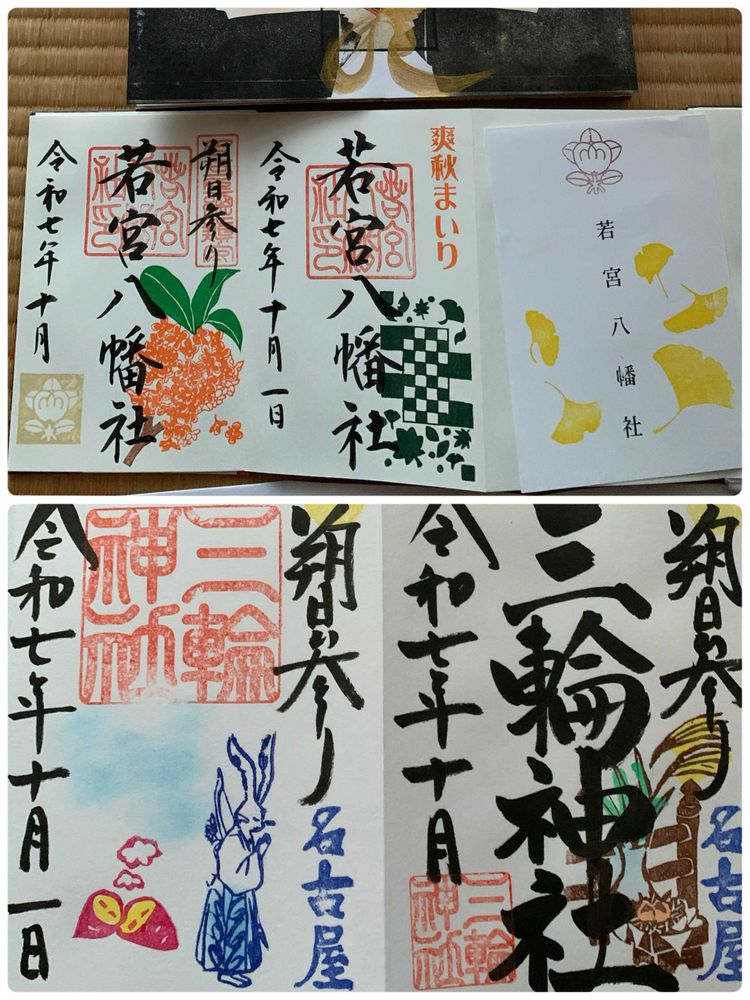 若宮八幡社
爽秋まいり
若宮八幡社
令和七年十月一日
朔日参り
若宮八幡社
令和七年十月
朔日お参り
名古屋
三輪神社
三輪神社
令和七年十月
朔日お参り
名古屋
三輪神社
令和七年十月一日